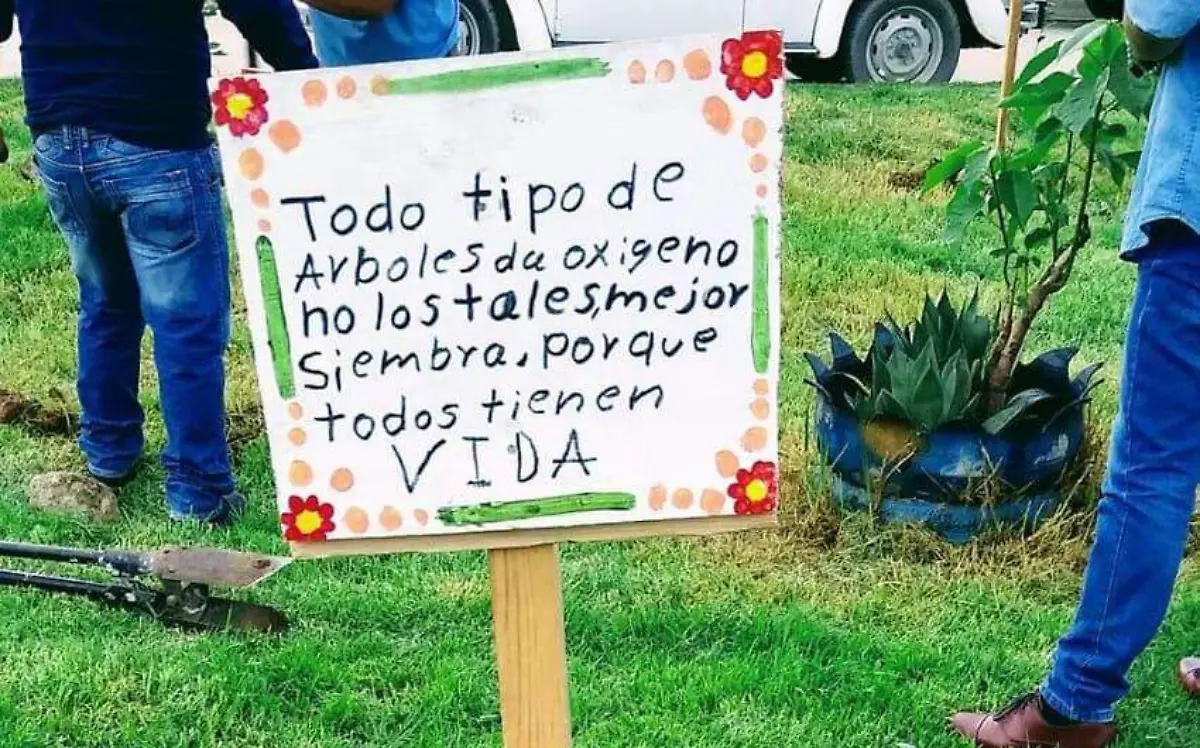 Todo tipo de
Arboles da oxigeno
no los tales, mejor
siembra, porque
todos tienen
VIDA